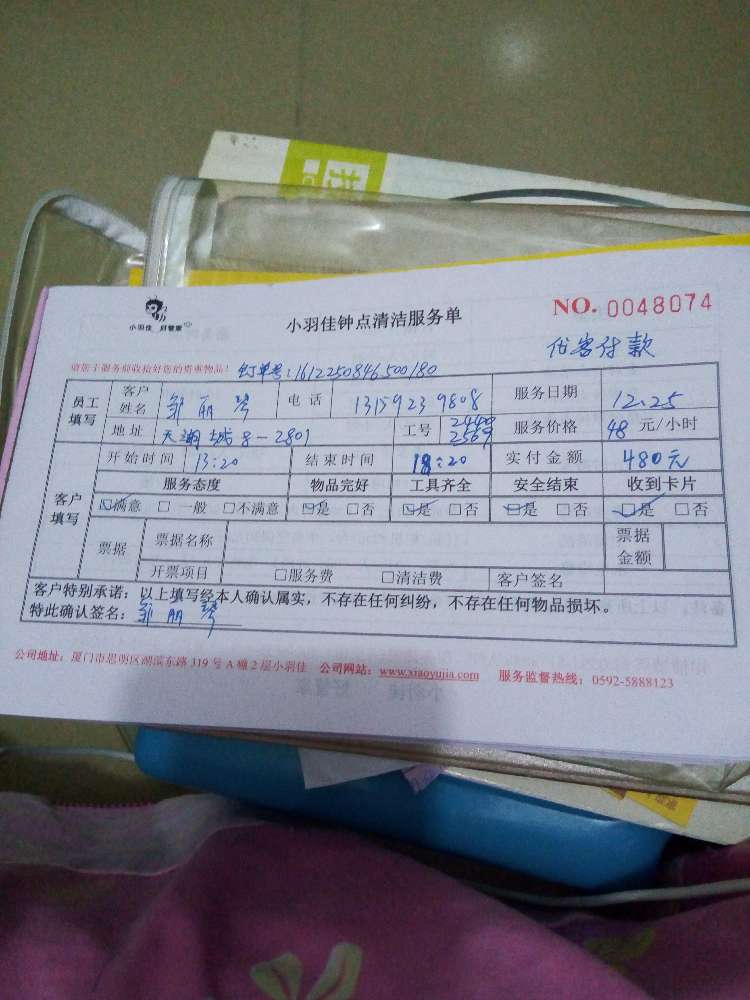 小羽佳 好管家
小羽佳钟点清洁服务单
NO. 0048074
代客付款
请您于服务前收拾好您的贵重物品!
订单号:1612250846500180
员工填写 客户姓名 邹丽琴 电话 13159239808 服务日期 12.25
地址 天湖城8-2801 工号 2440 2569 服务价格 48 元/小时
客户填写 开始时间 13:20 结束时间 18:20 实付金额 480元
服务态度 物品完好 工具齐全 安全结束 收到卡片
☑满意 □一般 □不满意 ☑是 □否 ☑是 □否 ☑是 □否 ☑是 □否
票据 票据名称 票据金额
开票项目 □服务费 □清洁费 客户签名
客户特别承诺:以上填写经本人确认属实,不存在任何纠纷,不存在任何物品损坏。
特此确认签名:邹丽琴
公司地址:厦门市思明区湖滨东路 319 号 A 幢 2 层小羽佳 公司网站:www.xiaoyujia.com 服务监督热线:0592-5888123